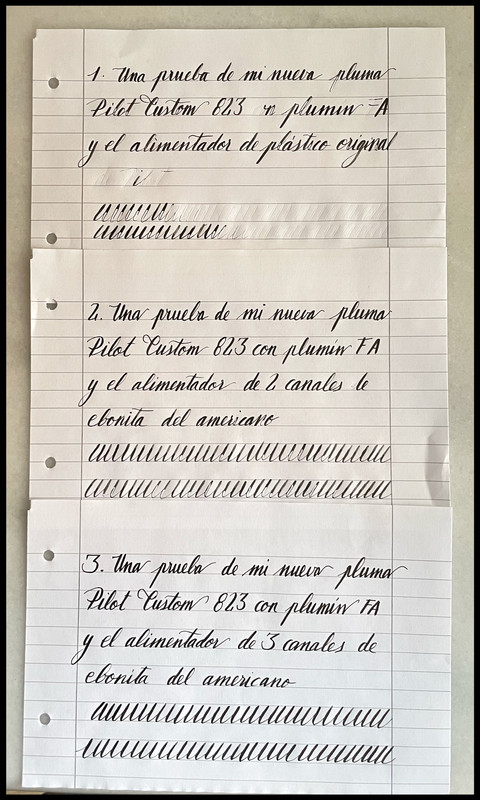 1. Una prueba de mi nueva pluma
Pilot Custom 823 plumin FA
y el alimentador de plástico original
de Pilot
2. Una prueba de mi nueva pluma
Pilot Custom 823 con plumín FA
y el alimentador de 2 canales de
ebonita del americano
3. Una prueba de mi nueva pluma
Pilot Custom 823 con plumín FA
y el alimentador de 3 canales de
ebonita del americano